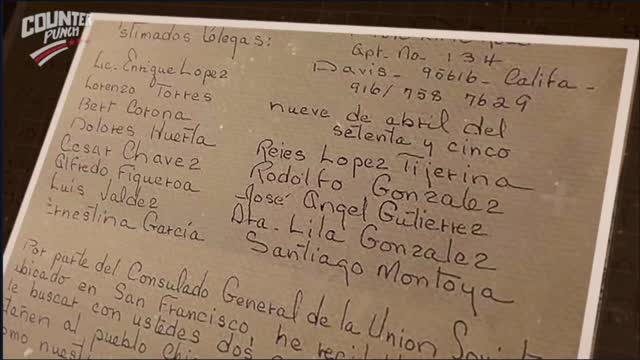 COUNTER
PUNCH
Estimados Colegas:
Lic. Enrique Lopez
Lorenzo Torres
Bert Corona
Dolores Huerta
Cesar Chavez
Alfredo Figueroa
Luis Valdez
Ernestina García
Apt. No. 134
Davis - 95616 - Calífa -
916/ 758 7629
nueve de abril del
setenta y cinco
Reies Lopez Tijerina
Rodolfo Gonzalez
José Angel Gutierrez
Dra. Lila Gonzalez
Santiago Montoya
Por parte del Consulado General de la Union
ubicado en San Francisco, he
le buscar con ustedes dos
al pueblo
como